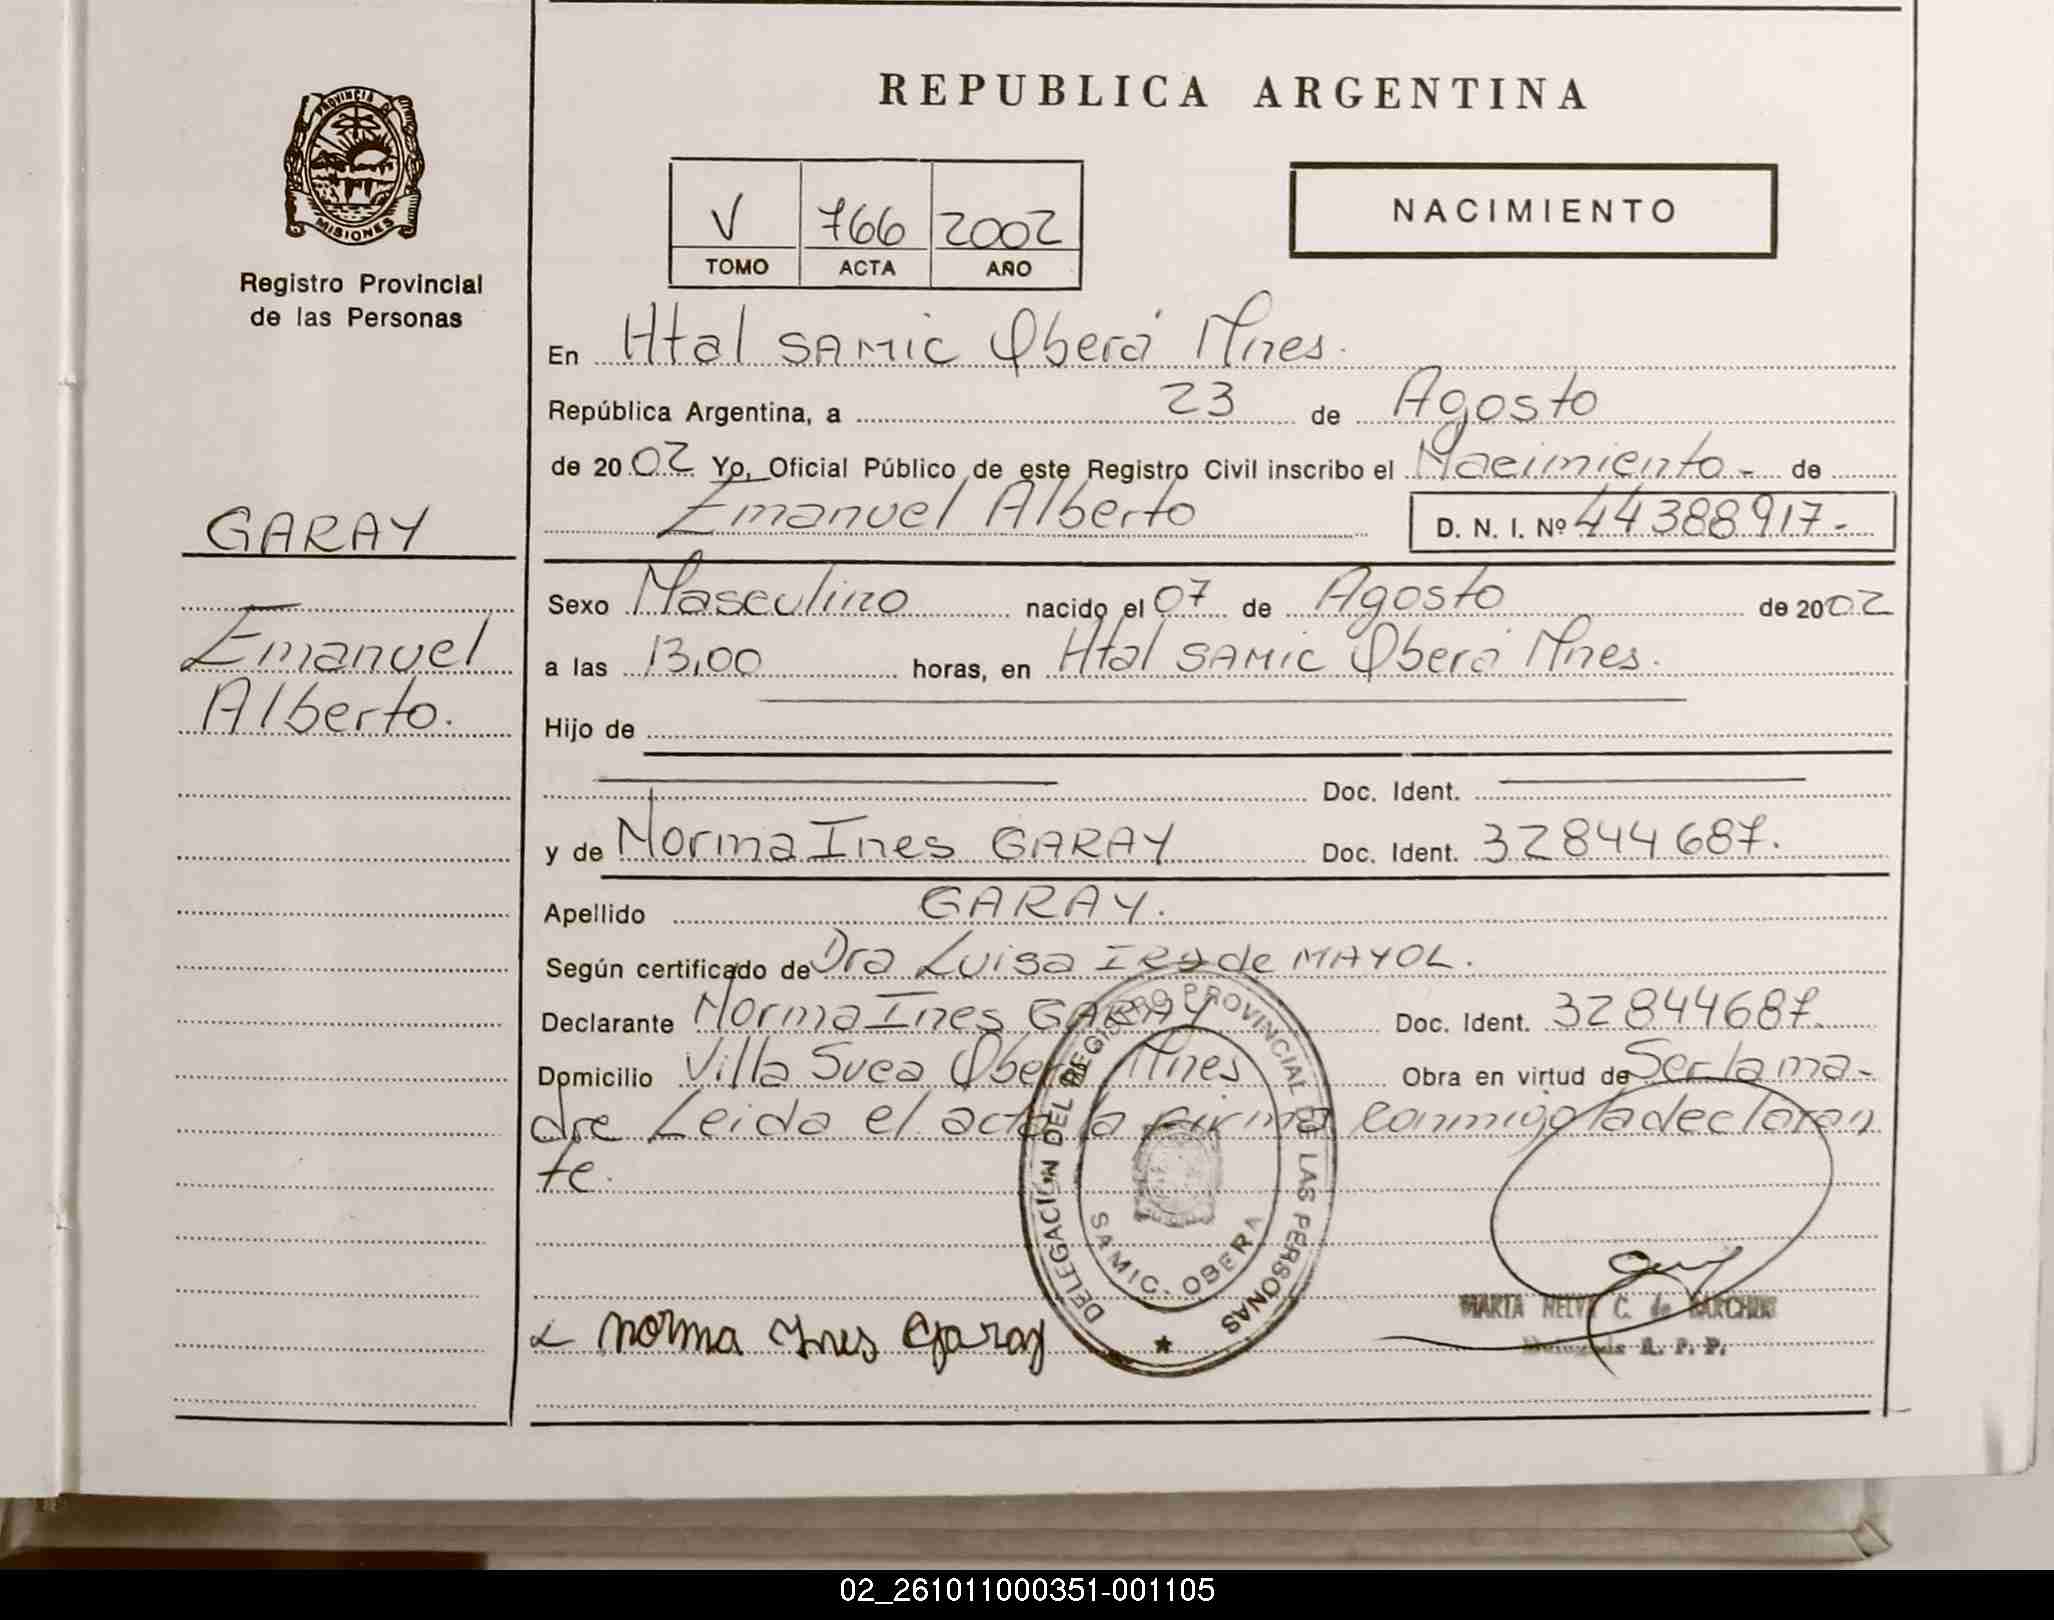 PROVINCIA DE
MISIONES
Registro Provincial
de las Personas
GARAY
Emanuel
Alberto.
REPUBLICA ARGENTINA
V 766 2002
TOMO ACTA AÑO
NACIMIENTO
En Htal SAMIC Oberá Mnes.
República Argentina, a 23 de Agosto
de 2002 Yo, Oficial Público de este Registro Civil inscribo el Nacimiento - de
Emanuel Alberto D. N. I. Nº 44388917-
Sexo Masculino nacido el 07 de Agosto de 2002
a las 13,00 horas, en Htal SAMIC Oberá Mnes.
Hijo de
Doc. Ident.
y de Norma Ines GARAY Doc. Ident. 32844687.
Apellido GARAY.
Según certificado de Dra Luisa de MAYOL.
Declarante Norma Ines GARAY Doc. Ident. 32844687.
Domicilio Villa Svea Oberá Mnes Obra en virtud de Ser la ma-
dre Leida el acta la firma conmigo la declaran
te.
DELEGACION DEL REGISTRO PROVINCIAL DE LAS PERSONAS
SAMIC - OBERA
Norma Ines Garay
MARTA C. de
R. P. P.
02_261011000351-001105